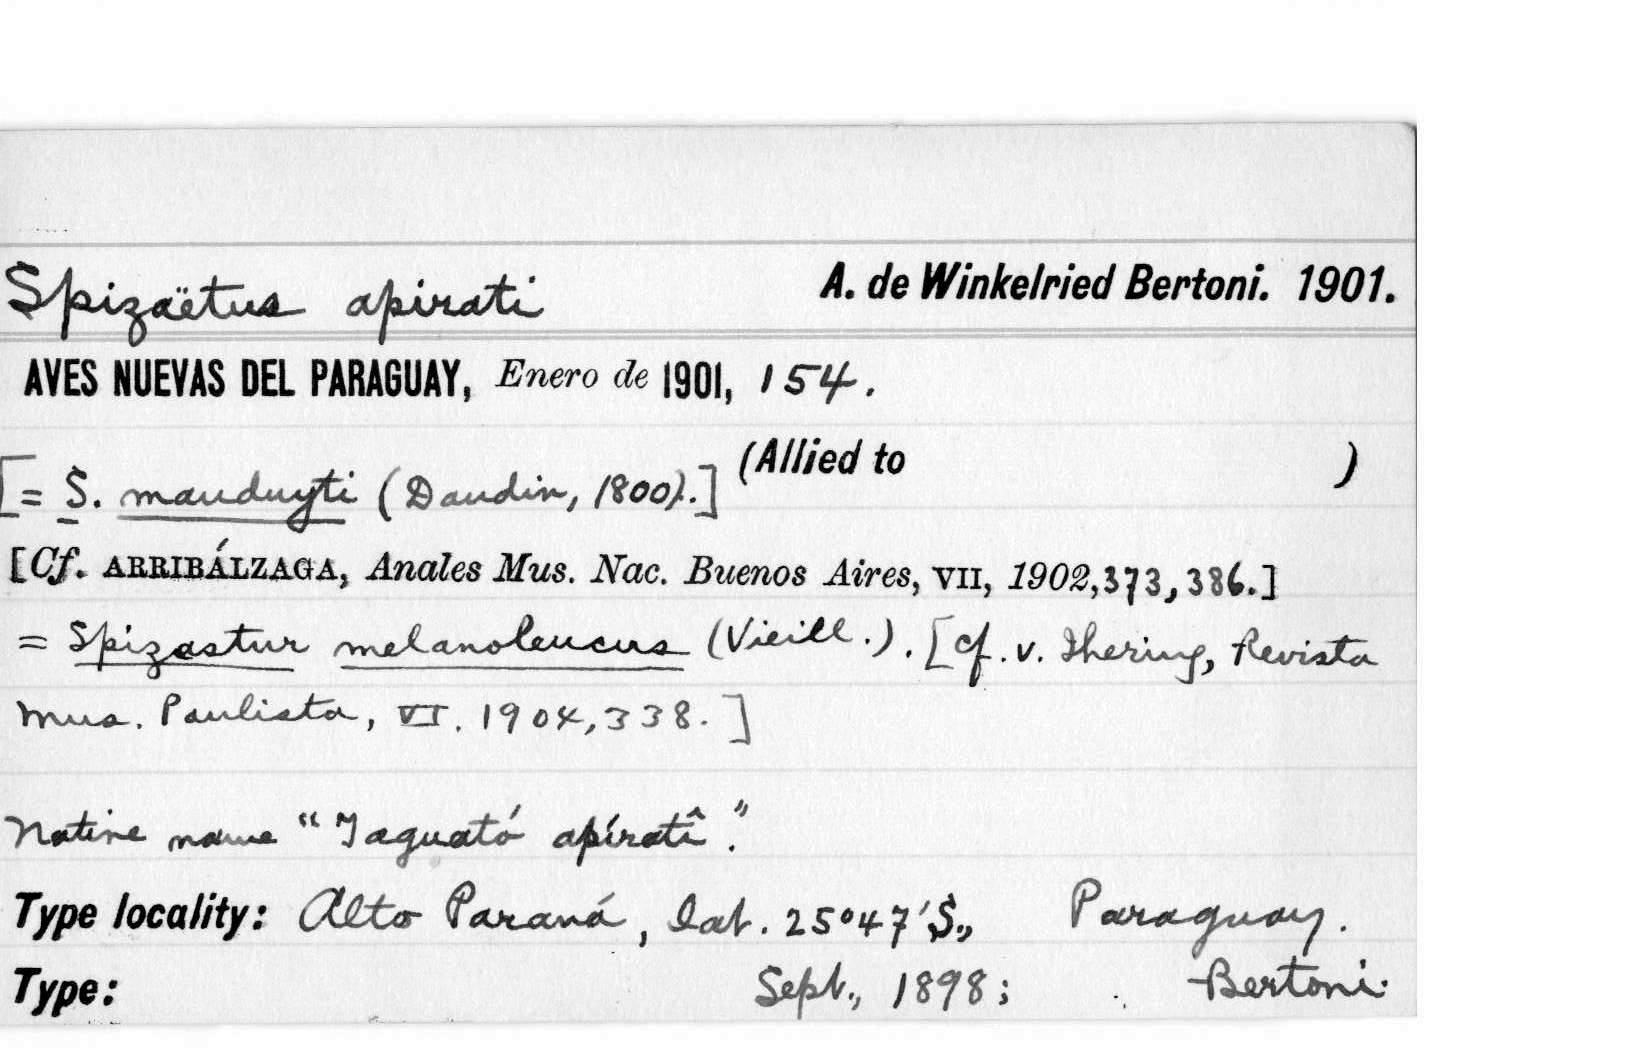 Spizaëtus apirati A. de Winkelried Bertoni. 1901.
AVES NUEVAS DEL PARAGUAY, Enero de 1901, 154.
[= S. mauduyti (Daudin, 1800).] (Allied to )
[Cf. ARRIBÁLZAGA, Anales Mus. Nac. Buenos Aires, VII, 1902, 373, 386.]
= Spizastur melanoleucus (Vieill.). [cf. v. Ihering, Revista
Mus. Paulista, VI. 1904, 338.]
Native name "Taguató apíratî".
Type locality: Alto Paraná, lat. 25°47'S., Paraguay.
Type: Sept., 1898; Bertoni.